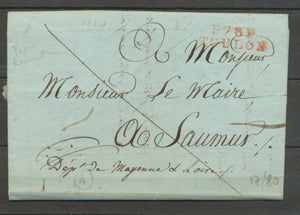 P78P
TOULON
A Monsieur
Monsieur Le Maire
A Saumur
Dépt. de Mayenne & Loire
17/80